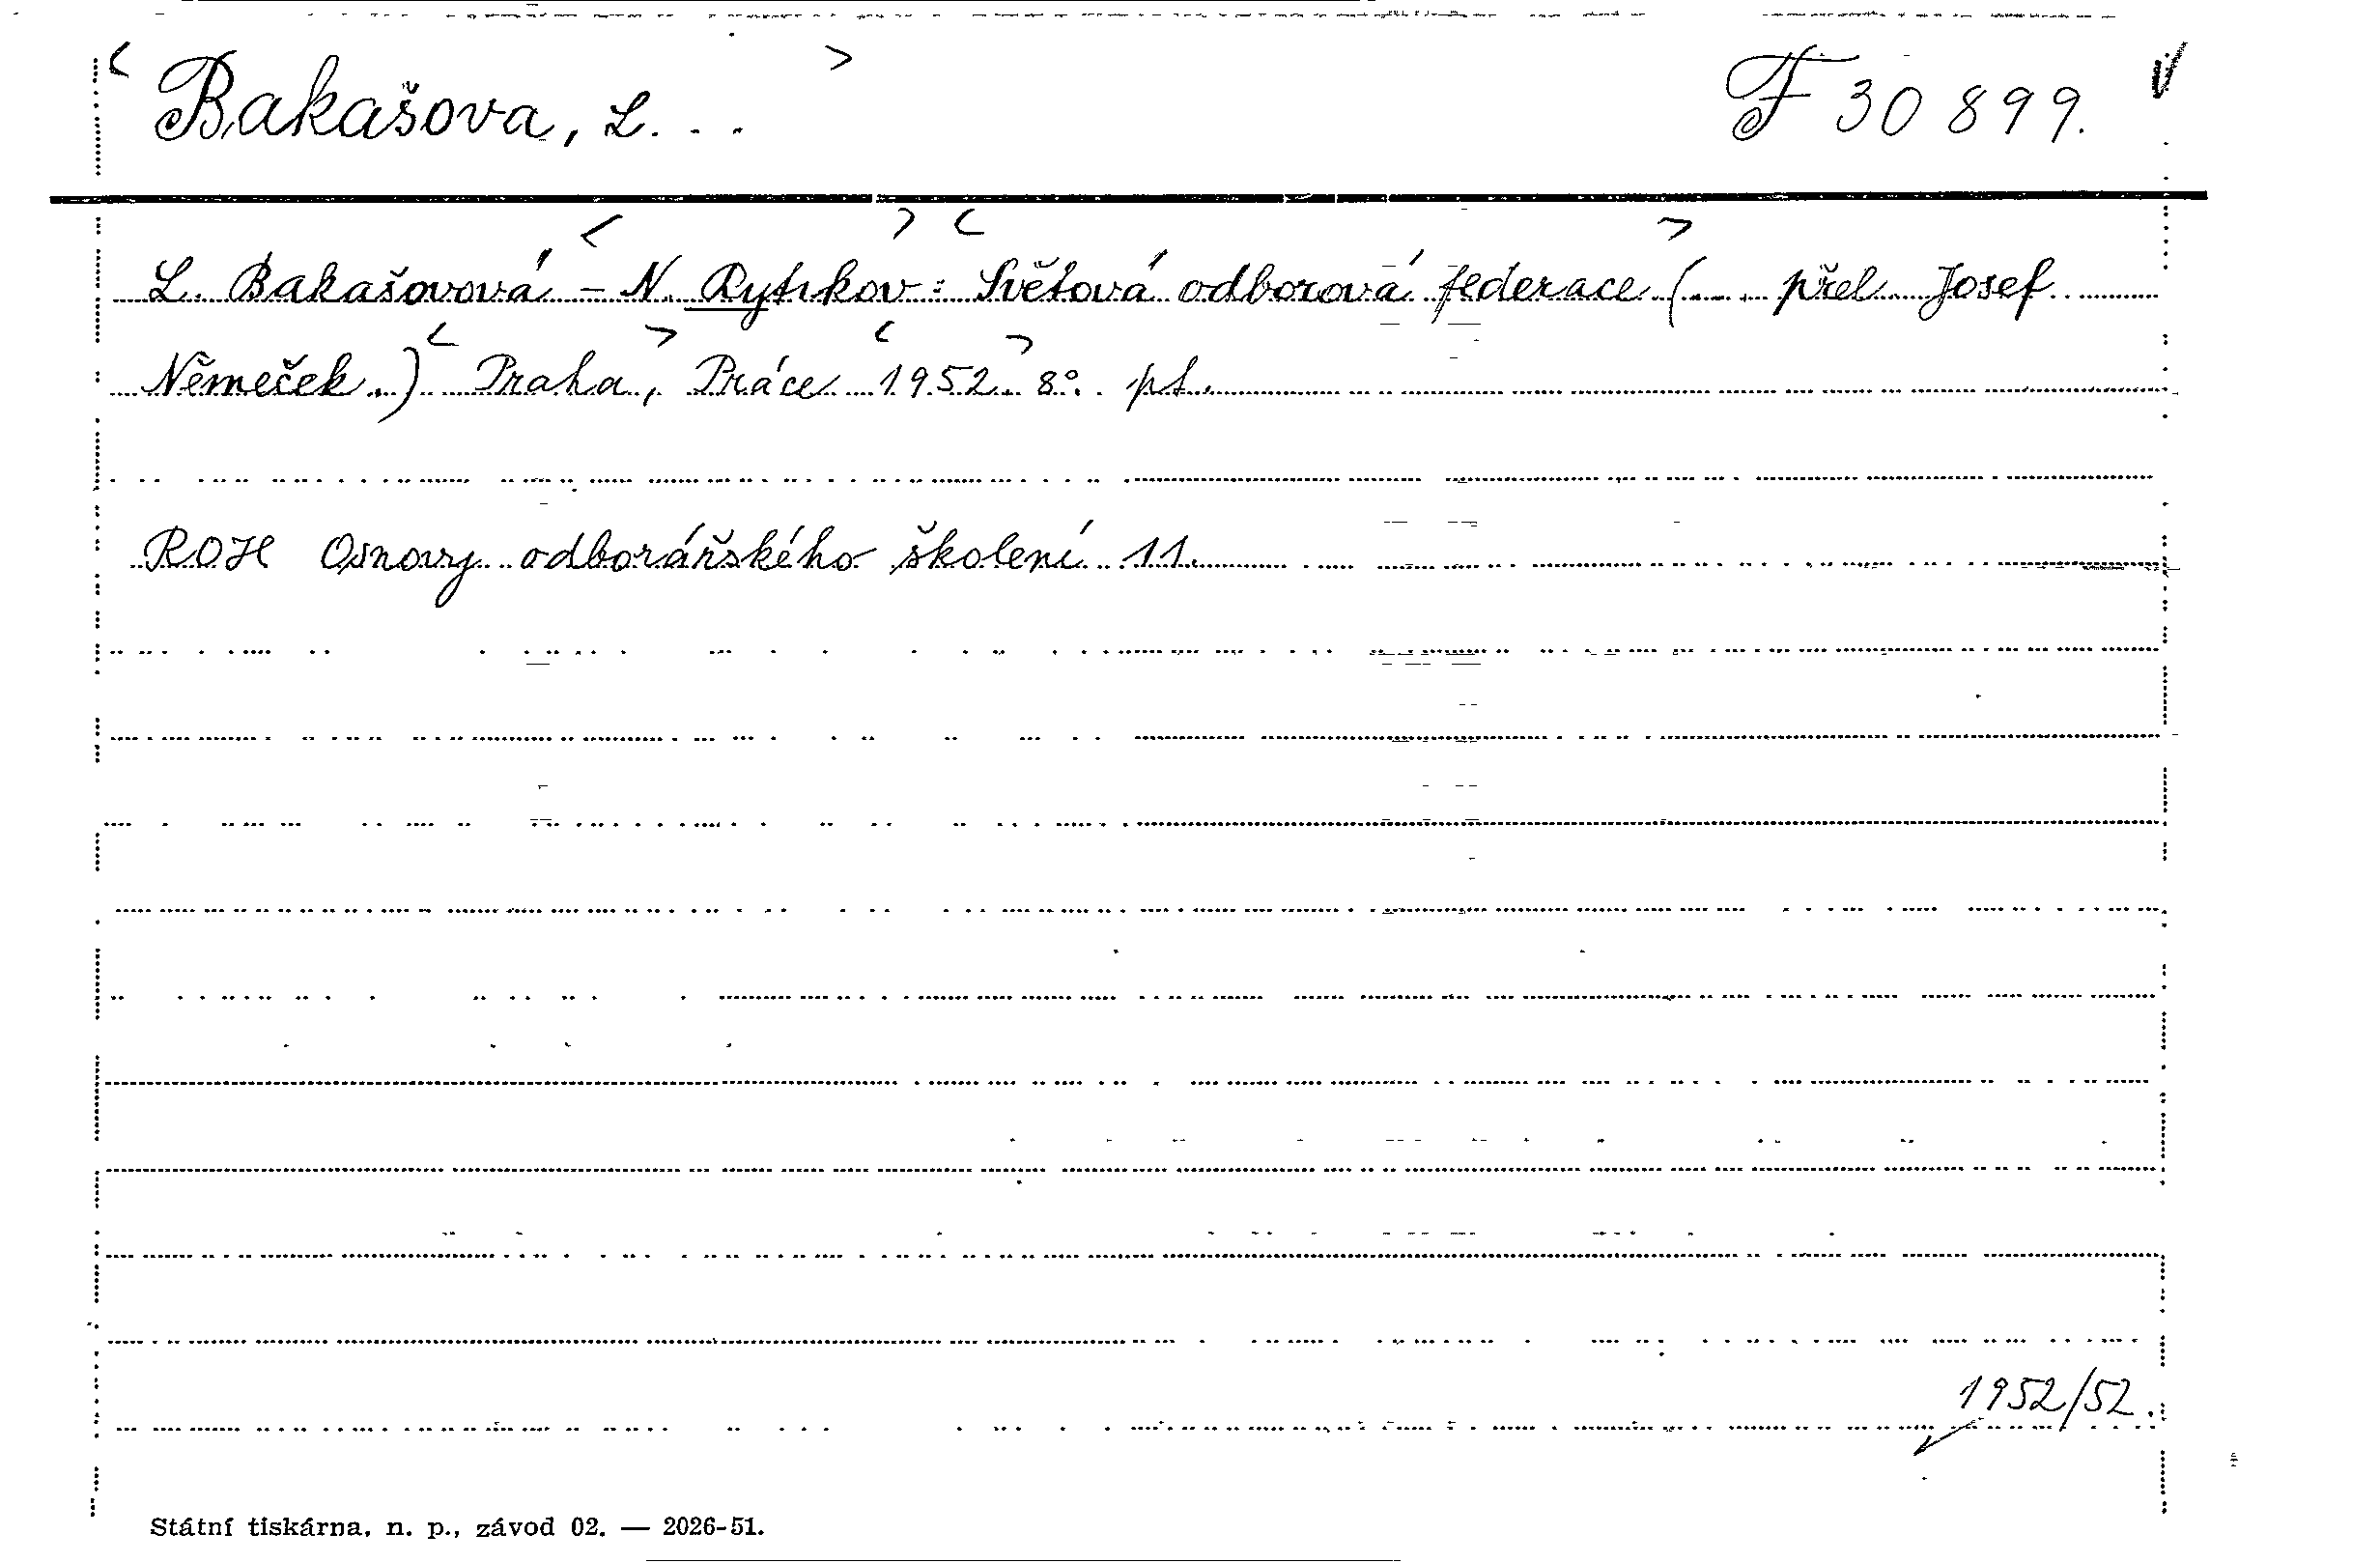 Bakašova, L. . .
F 30 899.
L. Bakašovová – N. Rytikov: Světová odborová federace (. . přel. Josef
Němeček.) Praha, Práce 1952. 8°. pt.
ROH Osnovy odborářského školení 11.
1952/52.
Státní tiskárna, n. p., závod 02. — 2026-51.